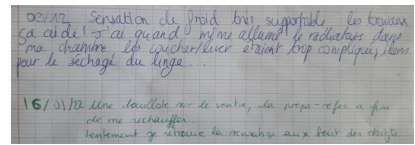 02/12 Sensation de froid très supportable les travaux
ça aide ! J'ai quand même allumé le radiateur dans
ma chambre les coucher/lever étaient trop compliqués, idem
pour le séchage du linge...
16/01/22 Une bouillote sur le ventre, la prépa-refec a fini
de me réchauffer.
Lentement je retrouve la sensation aux bout des doigts